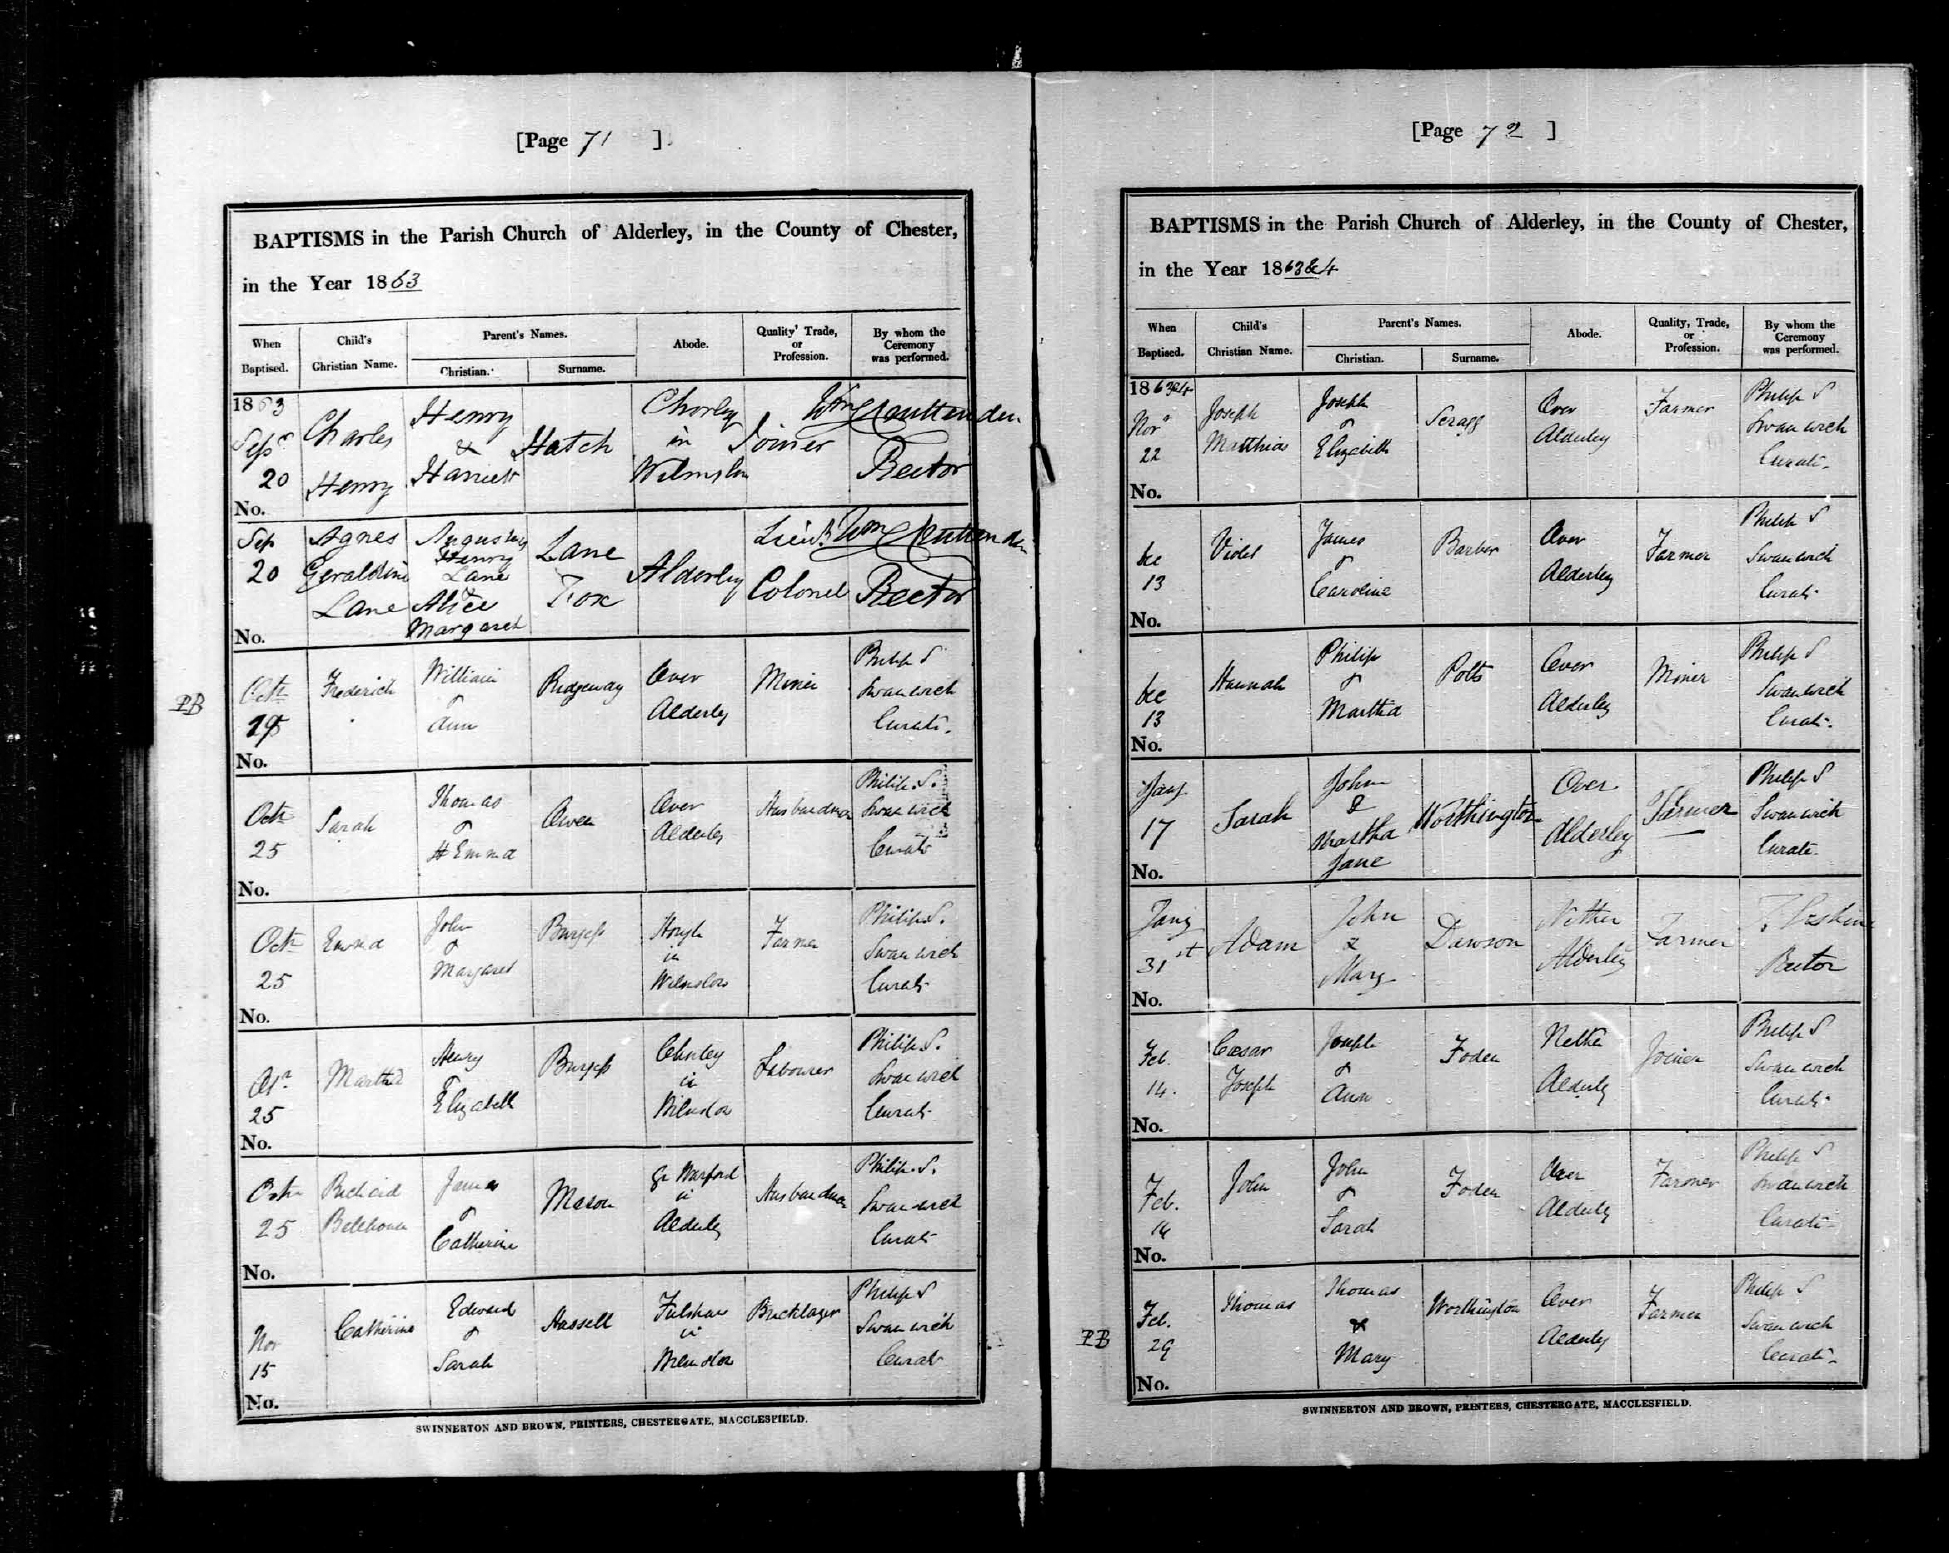 [Page 71 ]
BAPTISMS in the Parish Church of Alderley, in the County of Chester,
in the Year 1863
When Baptised.
Child's Christian Name.
Parent's Names.
Christian.
Surname.
Abode.
Quality' Trade, or Profession.
By whom the Ceremony was performed.
1863
Sepr 20
Charles Henry
Henry & Harriett
Hatch
Chorley in Wilmslow
Joiner
Rector
No.
Sep 20
Agnes Geraldine Lane
Augustus Henry Lane & Alice Margaret
Lane Fox
Alderley
Lieut Colonel
Rector
No.
PB
Octr
Frederick
William & Ann
Ridgeway
Over Alderley
Miner
Philip S Swanwick Curate.
No.
Octr 25
Sarah
Thomas & Emma
Owen
Over Alderley
Husbandman
Philip S. Swanwick Curate
No.
Octr 25
Emma
John & Margaret
Burgess
Hough in Wilmslow
Farmer
Philip S. Swanwick Curate
No.
Octr 25
Martha
Henry & Elizabeth
Burgess
Chorley in Wilmslow
Labourer
Philip S. Swanwick Curate
No.
Octr 25
Richard
James & Catherine
Mason
Gt Warford in Alderley
Husbandman
Philip S. Swanwick Curate
No.
Nov 15
Catherine
Edward & Sarah
Hassell
Fulshaw in Wilmslow
Bricklayer
Philip S Swanwick Curate
No.
SWINNERTON AND BROWN, PRINTERS, CHESTERGATE, MACCLESFIELD.
[Page 72 ]
BAPTISMS in the Parish Church of Alderley, in the County of Chester,
in the Year 1863&4
When Baptised.
Child's Christian Name.
Parent's Names.
Christian.
Surname.
Abode.
Quality, Trade, or Profession.
By whom the Ceremony was performed.
1863&4
Novr 22
Joseph Matthias
Joseph & Elizabeth
Scragg
Over Alderley
Farmer
Philip S Swanwick Curate.
No.
Dec 13
Violet
James & Caroline
Barber
Over Alderley
Farmer
Philip S Swanwick Curate
No.
Dec 13
Hannah
Philip & Martha
Potts
Over Alderley
Miner
Philip S Swanwick Curate.
No.
Jany 17
Sarah
John & Martha Jane
Worthington
Over Alderley
Farmer
Philip S Swanwick Curate.
No.
Jany 31st
Adam
John & Mary
Dawson
Nether Alderley
Farmer
Rector
No.
Feb. 14.
Cæsar Joseph
Joseph & Ann
Foden
Nether Alderley
Joiner
Philip S Swanwick Curate
No.
Feb. 14
John
John & Sarah
Foden
Over Alderley
Farmer
Philip S Swanwick Curate
No.
PB
Feb. 29
Thomas
Thomas & Mary
Worthington
Over Alderley
Farmer
Philip S Swanwick Curate.
No.
SWINNERTON AND BROWN, PRINTERS, CHESTERGATE, MACCLESFIELD.